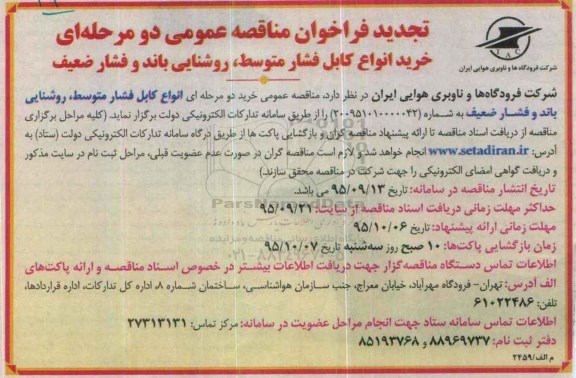 تجدید فراخوان مناقصه عمومی دو مرحله‌ای
خرید انواع کابل فشار متوسط، روشنایی باند و فشار ضعیف
شرکت فرودگاه ها و ناوبری هوایی ایران
شرکت فرودگاه‌ها و ناوبری هوایی ایران در نظر دارد، مناقصه عمومی خرید دو مرحله ای انواع کابل فشار متوسط، روشنایی
باند و فشار ضعیف به شماره (۲۰۰۹۵۱۰۱۰۰۰۰۴۲) را از طریق سامانه تدارکات الکترونیکی دولت برگزار نماید. (کلیه مراحل برگزاری
مناقصه از دریافت اسناد مناقصه تا ارائه پیشنهاد مناقصه گران و بازگشایی پاکت ها از طریق درگاه سامانه تدارکات الکترونیکی دولت (ستاد) به
آدرس: www.setadiran.ir انجام خواهد شد و لازم است مناقصه گران در صورت عدم عضویت قبلی، مراحل ثبت نام در سایت مذکور
و دریافت گواهی امضای الکترونیکی را جهت شرکت در مناقصه محقق سازند.)
تاریخ انتشار مناقصه در سامانه: تاریخ ۹۵/۰۹/۱۳ می باشد.
حداکثر مهلت زمانی دریافت اسناد مناقصه از سایت: ۹۵/۰۹/۲۱
مهلت زمانی ارائه پیشنهاد: تاریخ ۹۵/۱۰/۰۶
زمان بازگشایی پاکت‌ها: ۱۰ صبح روز سه‌شنبه تاریخ ۹۵/۱۰/۰۷
اطلاعات تماس دستگاه مناقصه‌گزار جهت دریافت اطلاعات بیشتر در خصوص اسناد مناقصه و ارائه پاکت‌های
الف آدرس: تهران- فرودگاه مهرآباد، خیابان معراج، جنب سازمان هواشناسی، ساختمان شماره ۸، اداره کل تدارکات، اداره قراردادها،
تلفن: ۶۱۰۲۲۴۸۶
اطلاعات تماس سامانه ستاد جهت انجام مراحل عضویت در سامانه: مرکز تماس: ۲۷۳۱۳۱۳۱
دفتر ثبت نام: ۸۸۹۶۹۷۳۷ و ۸۵۱۹۳۷۶۸
م الف/۲۴۵۹
ParsNamadData